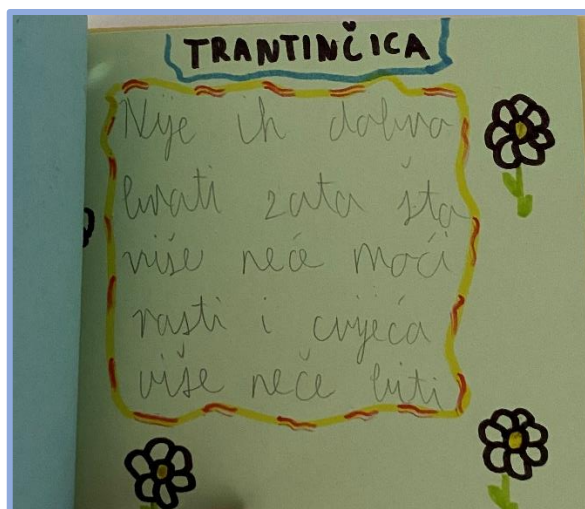 TRANTINČICA
Nije ih dobro
brati zato što
više neće moći
rasti i cvijeća
više neče biti